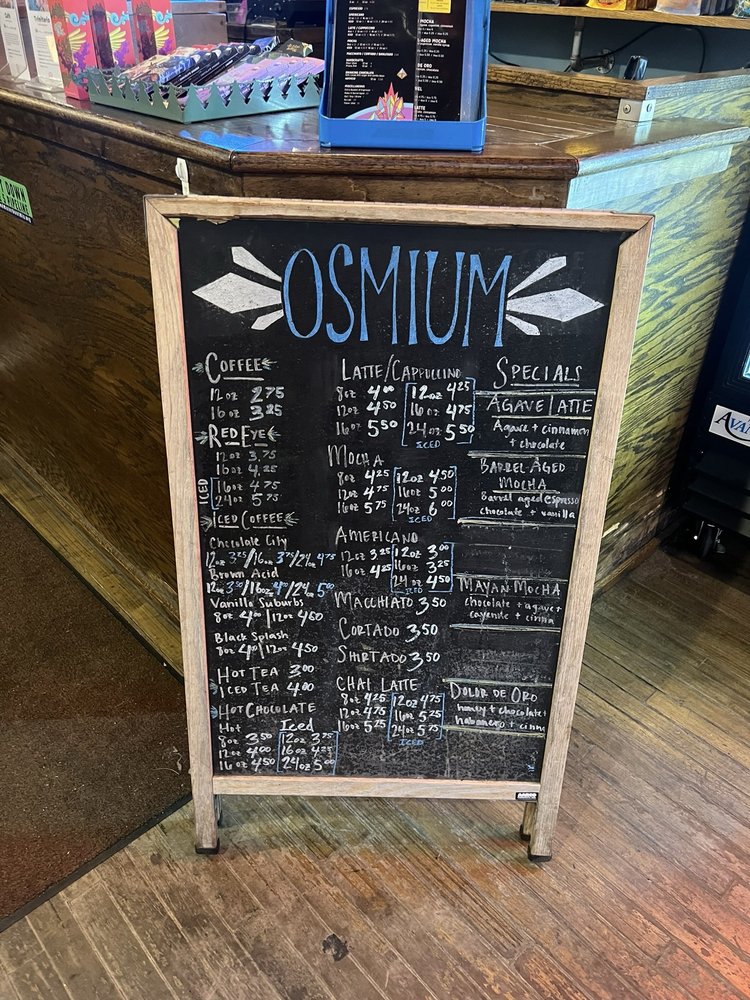 OSMIUM
COFFEE
12oz 2.75
16oz 3.25
RED EYE
12oz 3.75
16oz 4.25
ICED
16oz 4.75
24oz 5.75
ICED COFFEE
Chocolate City
12oz 3.25/16oz 3.75/24oz 4.75
Brown Acid
12oz 3.50/16oz 4.00/24oz 5.00
Vanilla Suburbs
8oz 4.00/12oz 4.50
Black Splash
8oz 4.00/12oz 4.50
HOT TEA 3.00
ICED TEA 4.00
HOT CHOCOLATE
Hot
8oz 3.50
12oz 4.00
16oz 4.50
Iced
12oz 3.75
16oz 4.25
24oz 5.00
LATTE/CAPPUCCINO
8oz 4.00
12oz 4.50
16oz 5.50
12oz 4.25
16oz 4.75
24oz 5.50
ICED
MOCHA
8oz 4.25
12oz 4.75
16oz 5.75
12oz 4.50
16oz 5.00
24oz 6.00
ICED
AMERICANO
12oz 3.25
16oz 4.25
12oz 3.00
16oz 3.25
24oz 4.50
ICED
MACCHIATO 3.50
CORTADO 3.50
SHIRTADO 3.50
CHAI LATTE
8oz 4.25
12oz 4.75
16oz 5.75
12oz 4.75
16oz 5.25
24oz 5.75
ICED
SPECIALS
AGAVE LATTE
Agave + cinnamon
+ chocolate
BARREL AGED
MOCHA
Barrel aged espresso
chocolate + vanilla
MAYAN MOCHA
chocolate + agave +
cayenne + cinna
DOLOR DE ORO
honey + chocolate +
habanero + cinn
MOCHA
DE ORO
LATTE